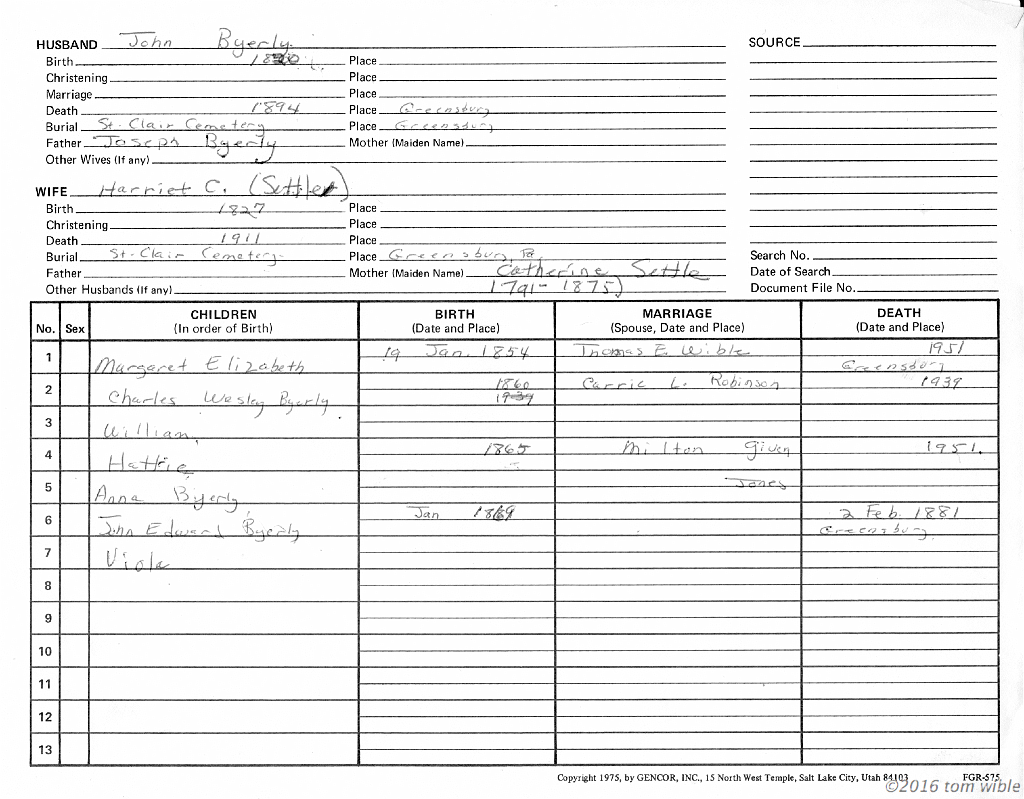 HUSBAND John Byerly SOURCE
Birth Place
Christening Place
Marriage Place
Death 1894 Place Greensburg
Burial St. Clair Cemetery Place Greensburg
Father Joseph Byerly Mother (Maiden Name)
Other Wives (If any)
WIFE Harriet C. (Settler)
Birth 1827 Place
Christening Place
Death 1911 Place
Burial St. Clair Cemetery Place Greensburg, Pa. Search No.
Father Mother (Maiden Name) Catherine Settle Date of Search
Other Husbands (If any) 1791-1875) Document File No.
No. Sex CHILDREN BIRTH MARRIAGE DEATH
(In order of Birth) (Date and Place) (Spouse, Date and Place) (Date and Place)
1 Margaret Elizabeth 19 Jan. 1854 Thomas E. Wible 1951
Greensburg
2 Charles Wesley Byerly 1860 Carrie L. Robinson 1939
1939
3 William
4 Hattie 1865 Milton Given 1951.
5 Anna Byerly Jones
6 John Edward Byerly Jan 1869 2 Feb. 1881
Greensburg
7 Viola
8
9
10
11
12
13
Copyright 1975, by GENCOR, INC., 15 North West Temple, Salt Lake City, Utah 84103 FGR-575
©2016 tom wible